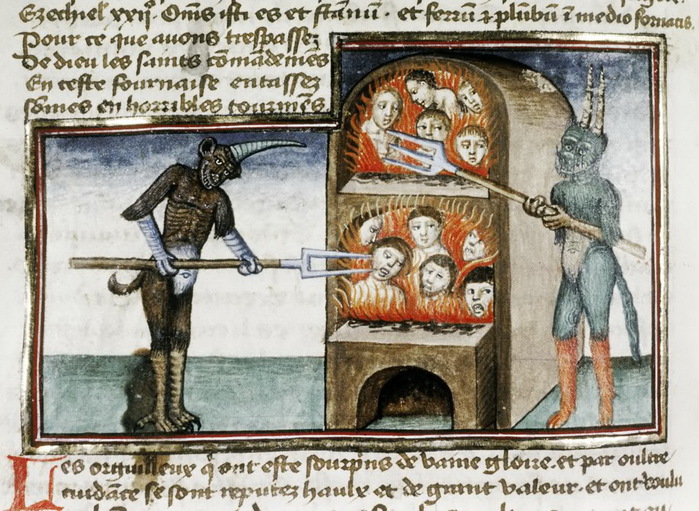 Ezechiel xxijº. Om̄s isti es et stannū. et ferrū ⁊ plūbū ī medio fornacis.
Pour ce que auons trespassez
De dieu les saints cōmādemēs
En ceste fournaise entassez
Sōmes en horribles tourmēs
Les orguilleux q̄ ont este sourprins de vaine gloire. et par oultre
cuidāce se sont reputez haulx et de grant valeur. et ont voulu